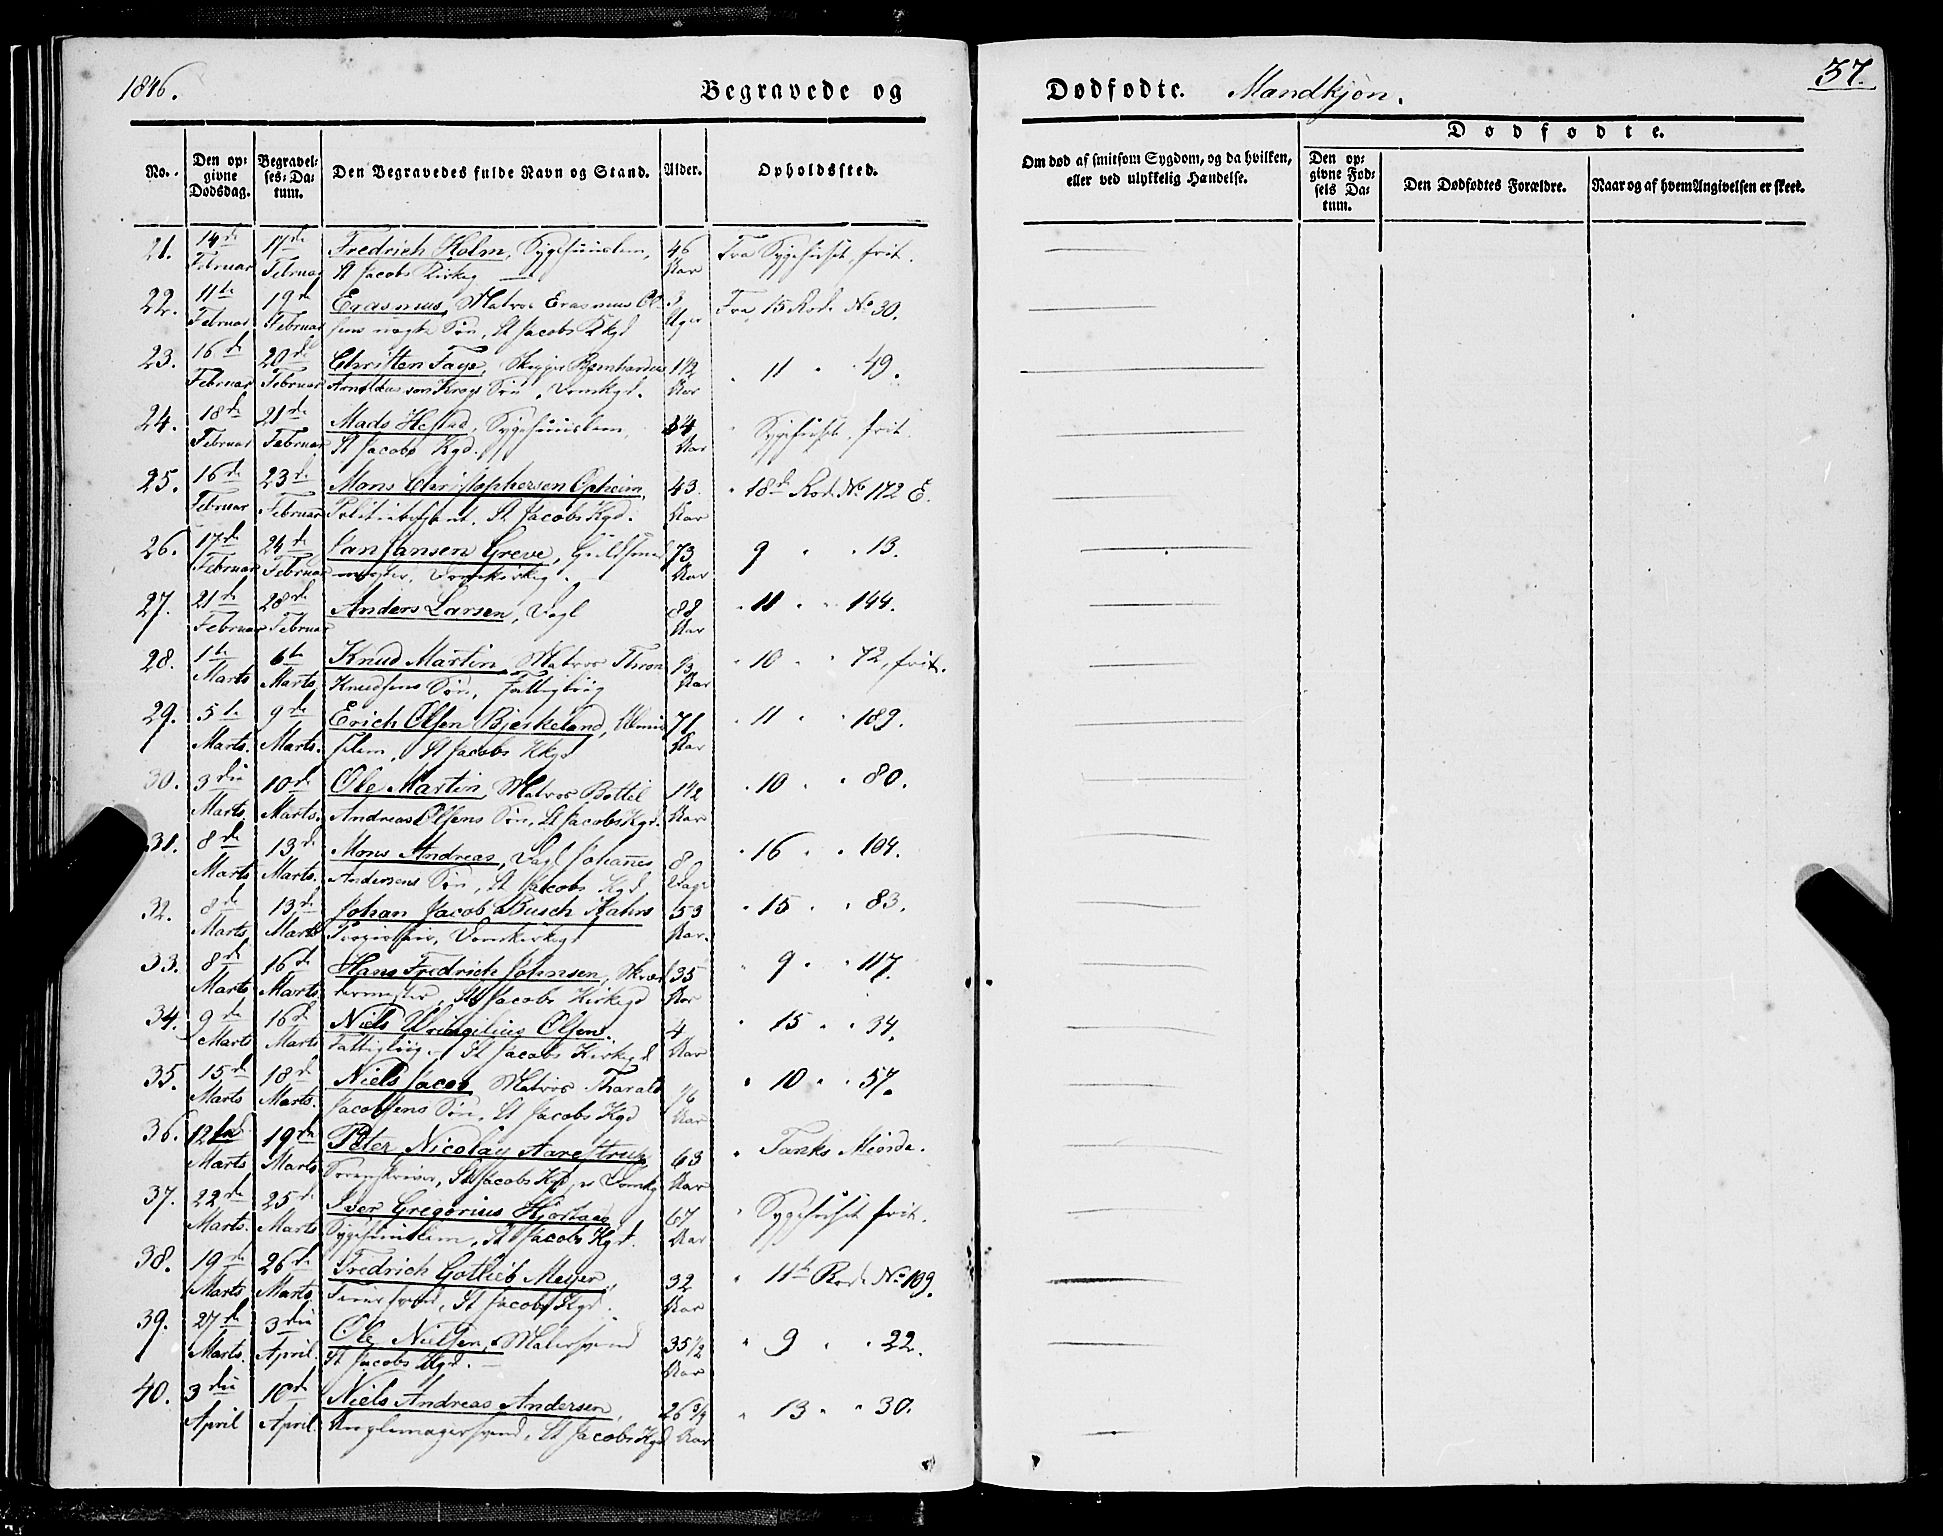 1846. Begravede og Dødfødte. Mandkjøn. 37.
No. Den opgivne Dødsdag. Begravelses-Datum. Den Begravedes fulde Navn og Stand. Alder. Opholdssted. Om død af smitsom Sygdom, og da hvilken, eller ved ulykkelig Hændelse. Dødfødte.
Den opgivne Fødsels Datum. Den Dødfødtes Forældre. Naar og af hvem Angivelsen er skeet.
21. 14de 17de Fredrich Holm, Sygehuuslem, 46 Fra Sygehuset, frit.
Februar Februar St Jacobs Kirkeg Aar
22. 11te 19d Erasmus, Matros Erasmus Ol- 3 Fra 15 Rode No 30.
Februar Februar sens ægte Søn, St Jacobs Kkgd Uger
23. 16de 20de Christen Faye, Skipper Bernhardus 1 1/2 " 11 " " 49.
Februar Februar Krogs Søn, Domkgd. Aar
24. 18de 21de Mads Hestad, Sygehuuslem, 54 " Sygehuset, frit.
Februar Februar St Jacobs Kgd. Aar
25. 16de 23de Mons Christophersen Opheim 43. " 18de Rode No 172 E.
Februar Februar Politiebetjent, St Jacobs Kgd. Aar
26. 17de 24de Jan Jansen Greve, Guldsmed 73 9 " " 13.
Februar Februar mester, Domkirkeg. Aar
27. 21de 28de Anders Larsen, Dagl 88 " 11 " " 144.
Februar Februar Aar
28. 1te 6te Knud Martin, Matros Thron " 10 " " 72, frit.
Marts Marts Knudsens Søn, Fattigliig Aar
29. 5te 9de Erich Olsen Bjerkeland, Almis 71 " 11 " " 189.
Marts. Marts. selem, St Jacobs Kkgd Aar
30. 3die 10de Ole Martin, Matros Bottel 1 1/2 " 10 " " 80.
Marts Marts. Andreas Olsens Søn, St Jacobs Kgd. Aar
31. 8de 13de Mons Andreas, Dagl Johannes 8 " 16 " " 104.
Marts Marts. Andersens Søn, St Jacobs Kgd. Dage
32. 8de 13de Johan Jacob Busch Kahrs 53 " 15 " " 83.
Marts Marts Domkirkegd Aar.
33. 8de 16de Hans Fredrich Johnsen, Skræd 35 " 9 " " 117.
Marts Marts dermester, St Jacobs Kirkegd Aar
34. 9de 16de Niels Olsen. 4 " 15 " " 34.
Marts Marts Fattigliig, St Jacobs Kirkegd Aar
35. 15de 18de Niels Jacob, Matros Tharald " 10 " " 57.
Marts Marts. Jacobsens Søn, St Jacobs Kgd Aar
36. 12te 19de Peter Nicolay Aarestrup 63 " Tanks Meorde.
Marts Marts Sorenskriver, St Jacobs Kgd, Aar
37. 22de 25de Iver Gregorius Hjortaas 67 " Sygehuset frit.
Marts. Marts Sygehuuslem, St Jacobs Kgd. Aar
38. 19de 26de Fredrich Gotlieb Meyer, 32 " 11te Rode No 109.
Marts Marts. St Jacobs Kgd. Aar
39. 27de 3die Ole Nielsen, Malersvend 35 1/2 " 9 " " 22.
Marts. April. St Jacobs Kgd. Aar
40. 3die 10de Niels Andreas Andersen, 26 3/4 " 13 " " 30.
April April. St Jacobs Kgd Aar